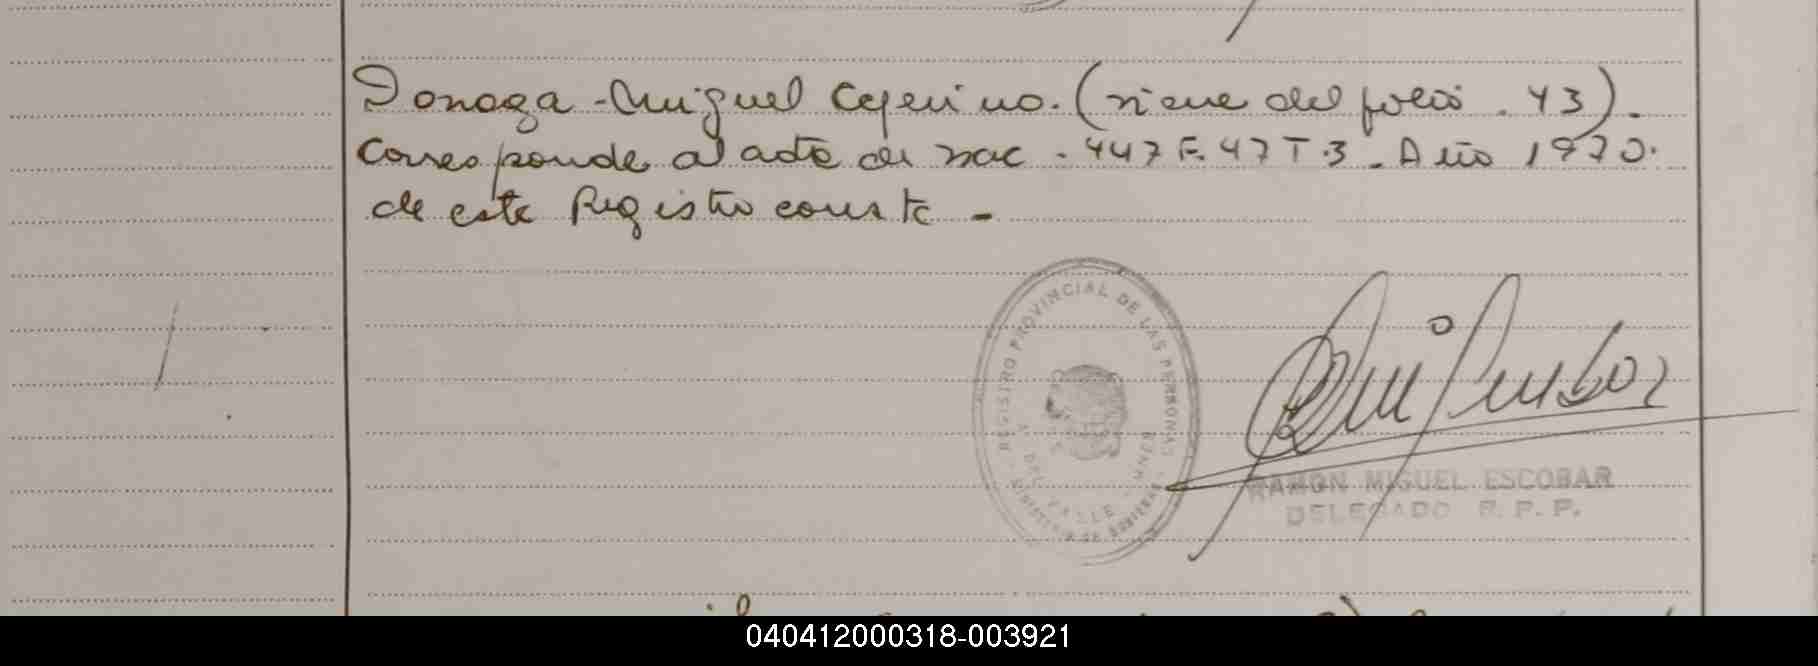 Donoga - Miguel Ceferino. (viene del folio . 43).
Corresponde al acta de nac - 447 F. 47 T.3 - Año 1970.
de este Registro conste -
REGISTRO PROVINCIAL DE LAS PERSONAS
MINISTERIO DE GOBIERNO
DEL VALLE
RAMON MIGUEL ESCOBAR
DELEGADO R. P. P.
040412000318-003921